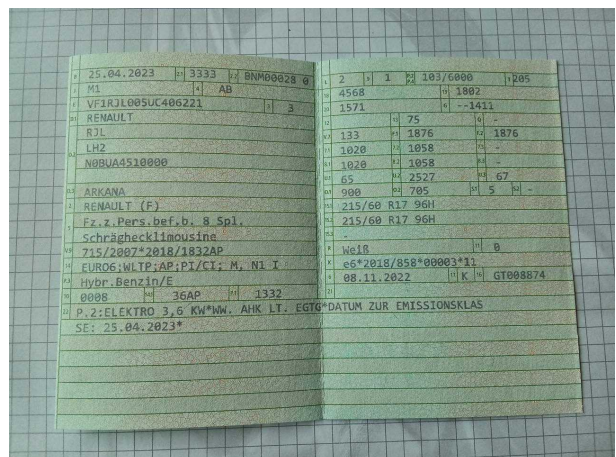 25.04.2023 3333 BNM00028 0
M1 AB
VF1RJL005UC406221 3
RENAULT
RJL
LH2
N0BUA4510000
ARKANA
RENAULT (F)
Fz.z.Pers.bef.b. 8 Spl.
Schräghecklimousine
715/2007*2018/1832AP
EURO6;WLTP;AP;PI/CI; M, N1 I
Hybr.Benzin/E
0008 36AP 1332
P.2:ELEKTRO 3,6 KW*WW. AHK LT. EGTG*DATUM ZUR EMISSIONSKLAS
SE: 25.04.2023*
2 1 103/6000 205
4568 1802
1571 --1411
75 -
133 1876 1876
1020 1058 -
1020 1058 -
65 2527 67
900 705 5 -
215/60 R17 96H
215/60 R17 96H
-
Weiß 0
e6*2018/858*00003*11
08.11.2022 K GT008874